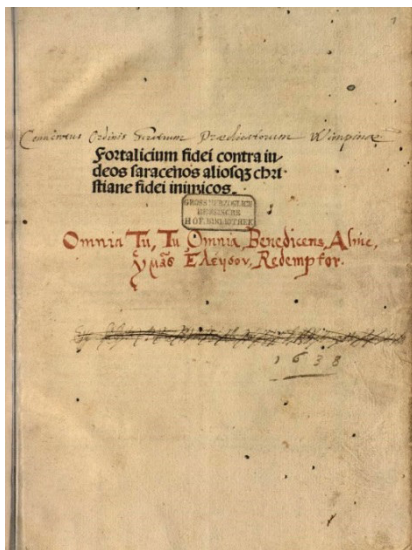 Conventus Ordinis Fratrum Prædicatorum Wimpinæ
Fortalicium fidei contra iu-
deos saracenos aliosqȝ chri
stiane fidei inimicos.
GROSSHERZOGLICH
HESSISCHE
HOFBIBLIOTHEK
Omnia Tu, Tu Omnia, Benedicens, Alme,
ἡμᾶς Ἐλέησον, Redemptor.
1638